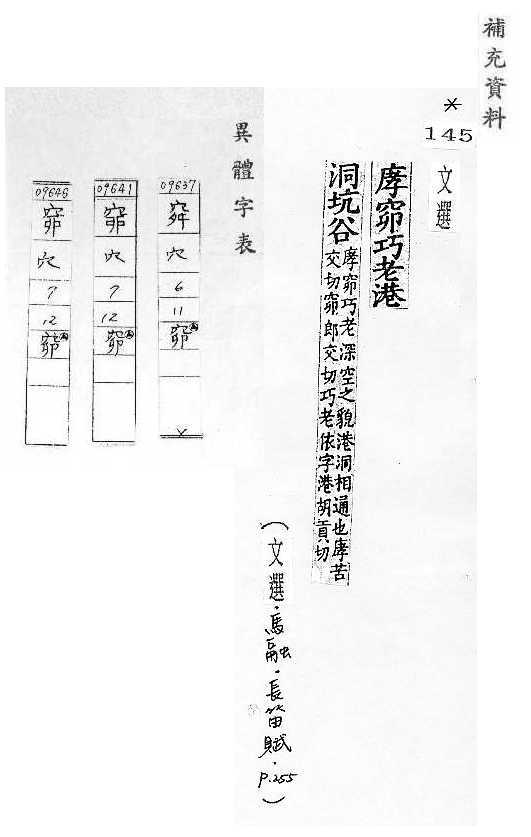 補充資料
*
145
文選
庨窌巧老港
洞坑谷
庨窌巧老深空之貌港洞相通也庨苦
交切窌郎交切巧老依字港胡貢切
(文選·馬融·長笛賦·P.255)
異體字表
09637
穴
6
11
09641
穴
7
12
09646
穴
7
12